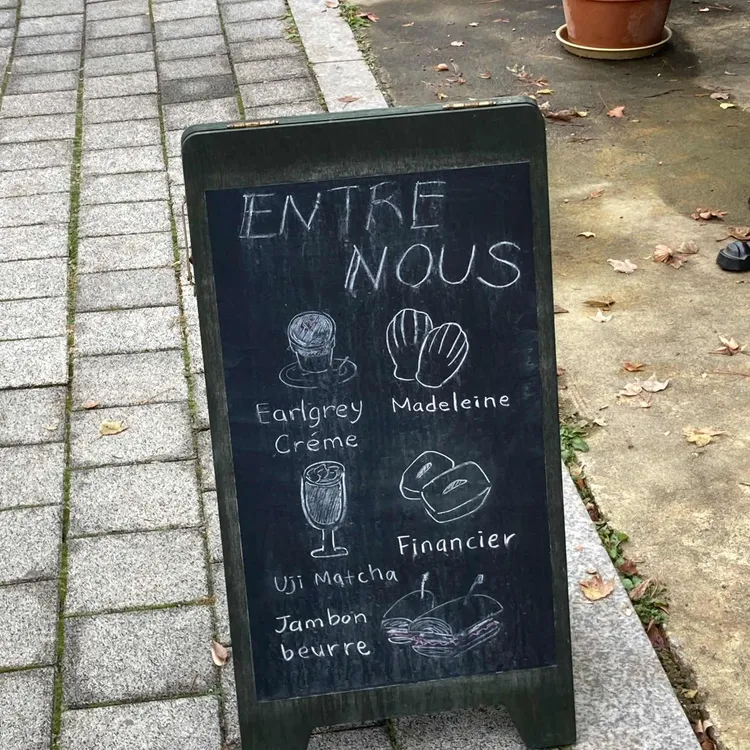 ENTRE
NOUS
Earlgrey
Créme
Madeleine
Uji Matcha
Financier
Jambon
beurre